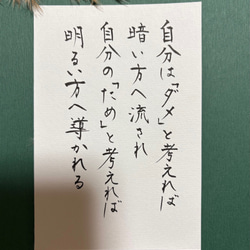 自分は「ダメ」と考えれば
暗い方へ流され
自分の「ため」と考えれば
明るい方へ導かれる